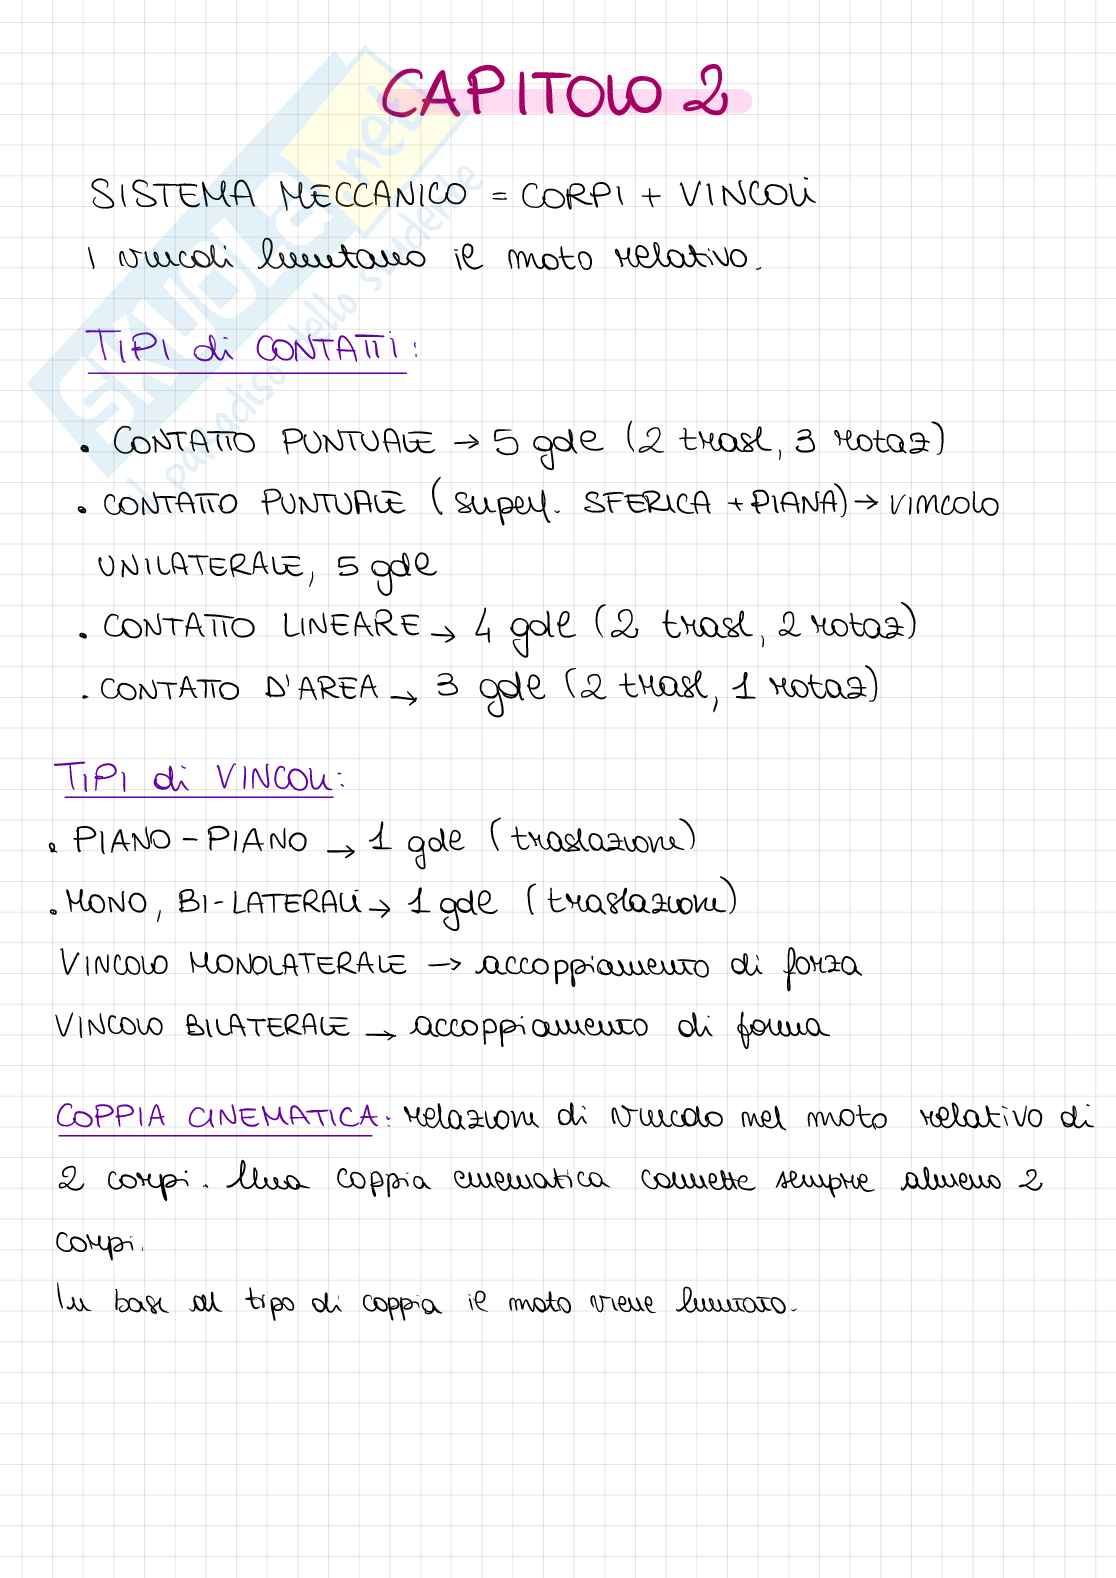 CAPITOLO 2
SISTEMA MECCANICO = CORPI + VINCOLI
I vincoli limitano il moto relativo.
TIPI di CONTATTI:
• CONTATTO PUNTUALE → 5 gdl (2 trasl, 3 rotaz)
• CONTATTO PUNTUALE (superf. SFERICA + PIANA) → vincolo
UNILATERALE, 5 gdl
• CONTATTO LINEARE → 4 gdl (2 trasl, 2 rotaz)
• CONTATTO D'AREA → 3 gdl (2 trasl, 1 rotaz)
TIPI di VINCOLI:
• PIANO - PIANO → 1 gdl (traslazione)
• MONO, BI-LATERALI → 1 gdl (traslazione)
VINCOLO MONOLATERALE → accoppiamento di forza
VINCOLO BILATERALE → accoppiamento di forma
COPPIA CINEMATICA: relazioni di vincolo nel moto relativo di
2 corpi. Una coppia cinematica connette sempre almeno 2
corpi.
In base al tipo di coppia il moto viene limitato.
SKUOLA.net
il paradiso dello studente